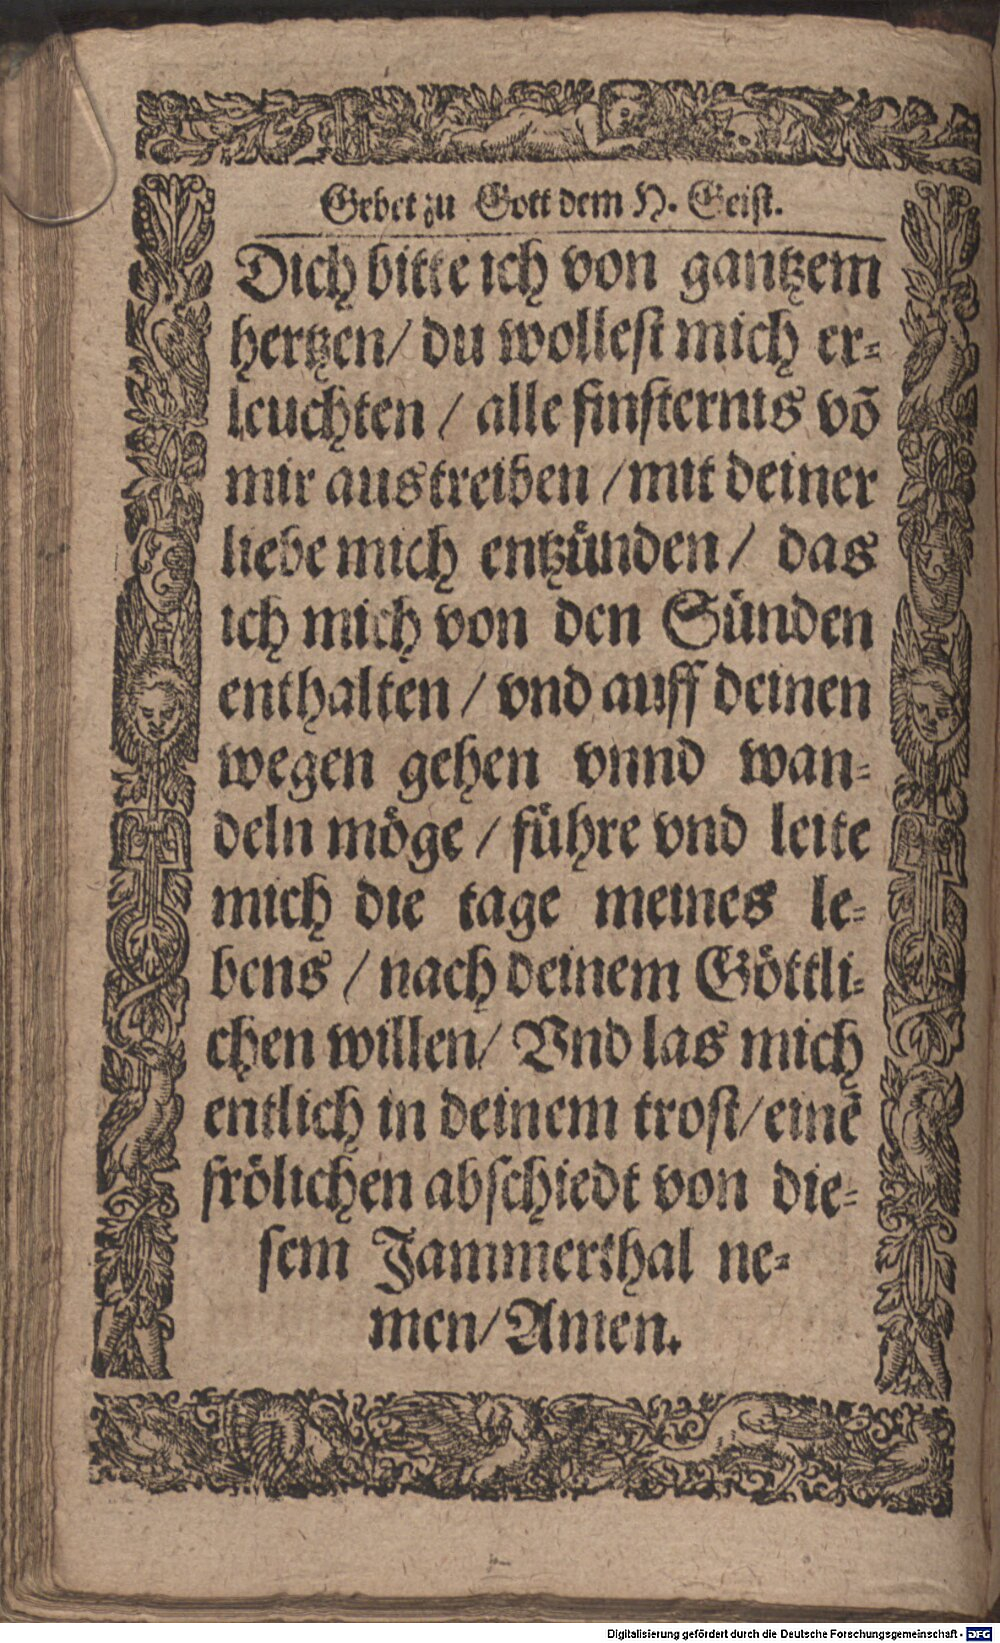 Gebet zu Gott dem H. Geist.
Dich bitte ich von gantzem
hertzen/ du wollest mich er-
leuchten / alle finsternis võ
mir austreiben / mit deiner
liebe mich entzünden/ das
ich mich von den Sünden
enthalten / vnd auff deinen
wegen gehen vnnd wan-
deln möge / führe vnd leite
mich die tage meines le-
bens / nach deinem Göttli-
chen willen/ Vnd las mich
entlich in deinem trost/ einẽ
frölichen abschiedt von die-
sem Jammerthal ne-
men/ Amen.
Digitalisierung gefördert durch die Deutsche Forschungsgemeinschaft - DFG